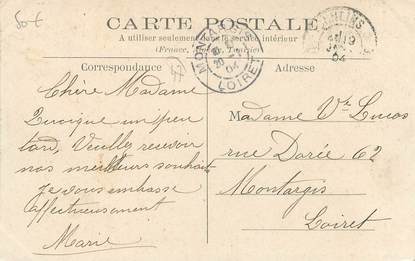 50 €
CARTE POSTALE
A utiliser seulement dans le service intérieur
(France, Tunisie)
Correspondance
Adresse
MONTARGIS
04
LOIRET
04
Chère Madame
Quoique un peu
tard, Veuillez recevoir
nos meilleurs souhaits
Je vous embrasse
affectueusement
Marie
Madame Vve Lucas
rue Dorée 62
Montargis
Loiret